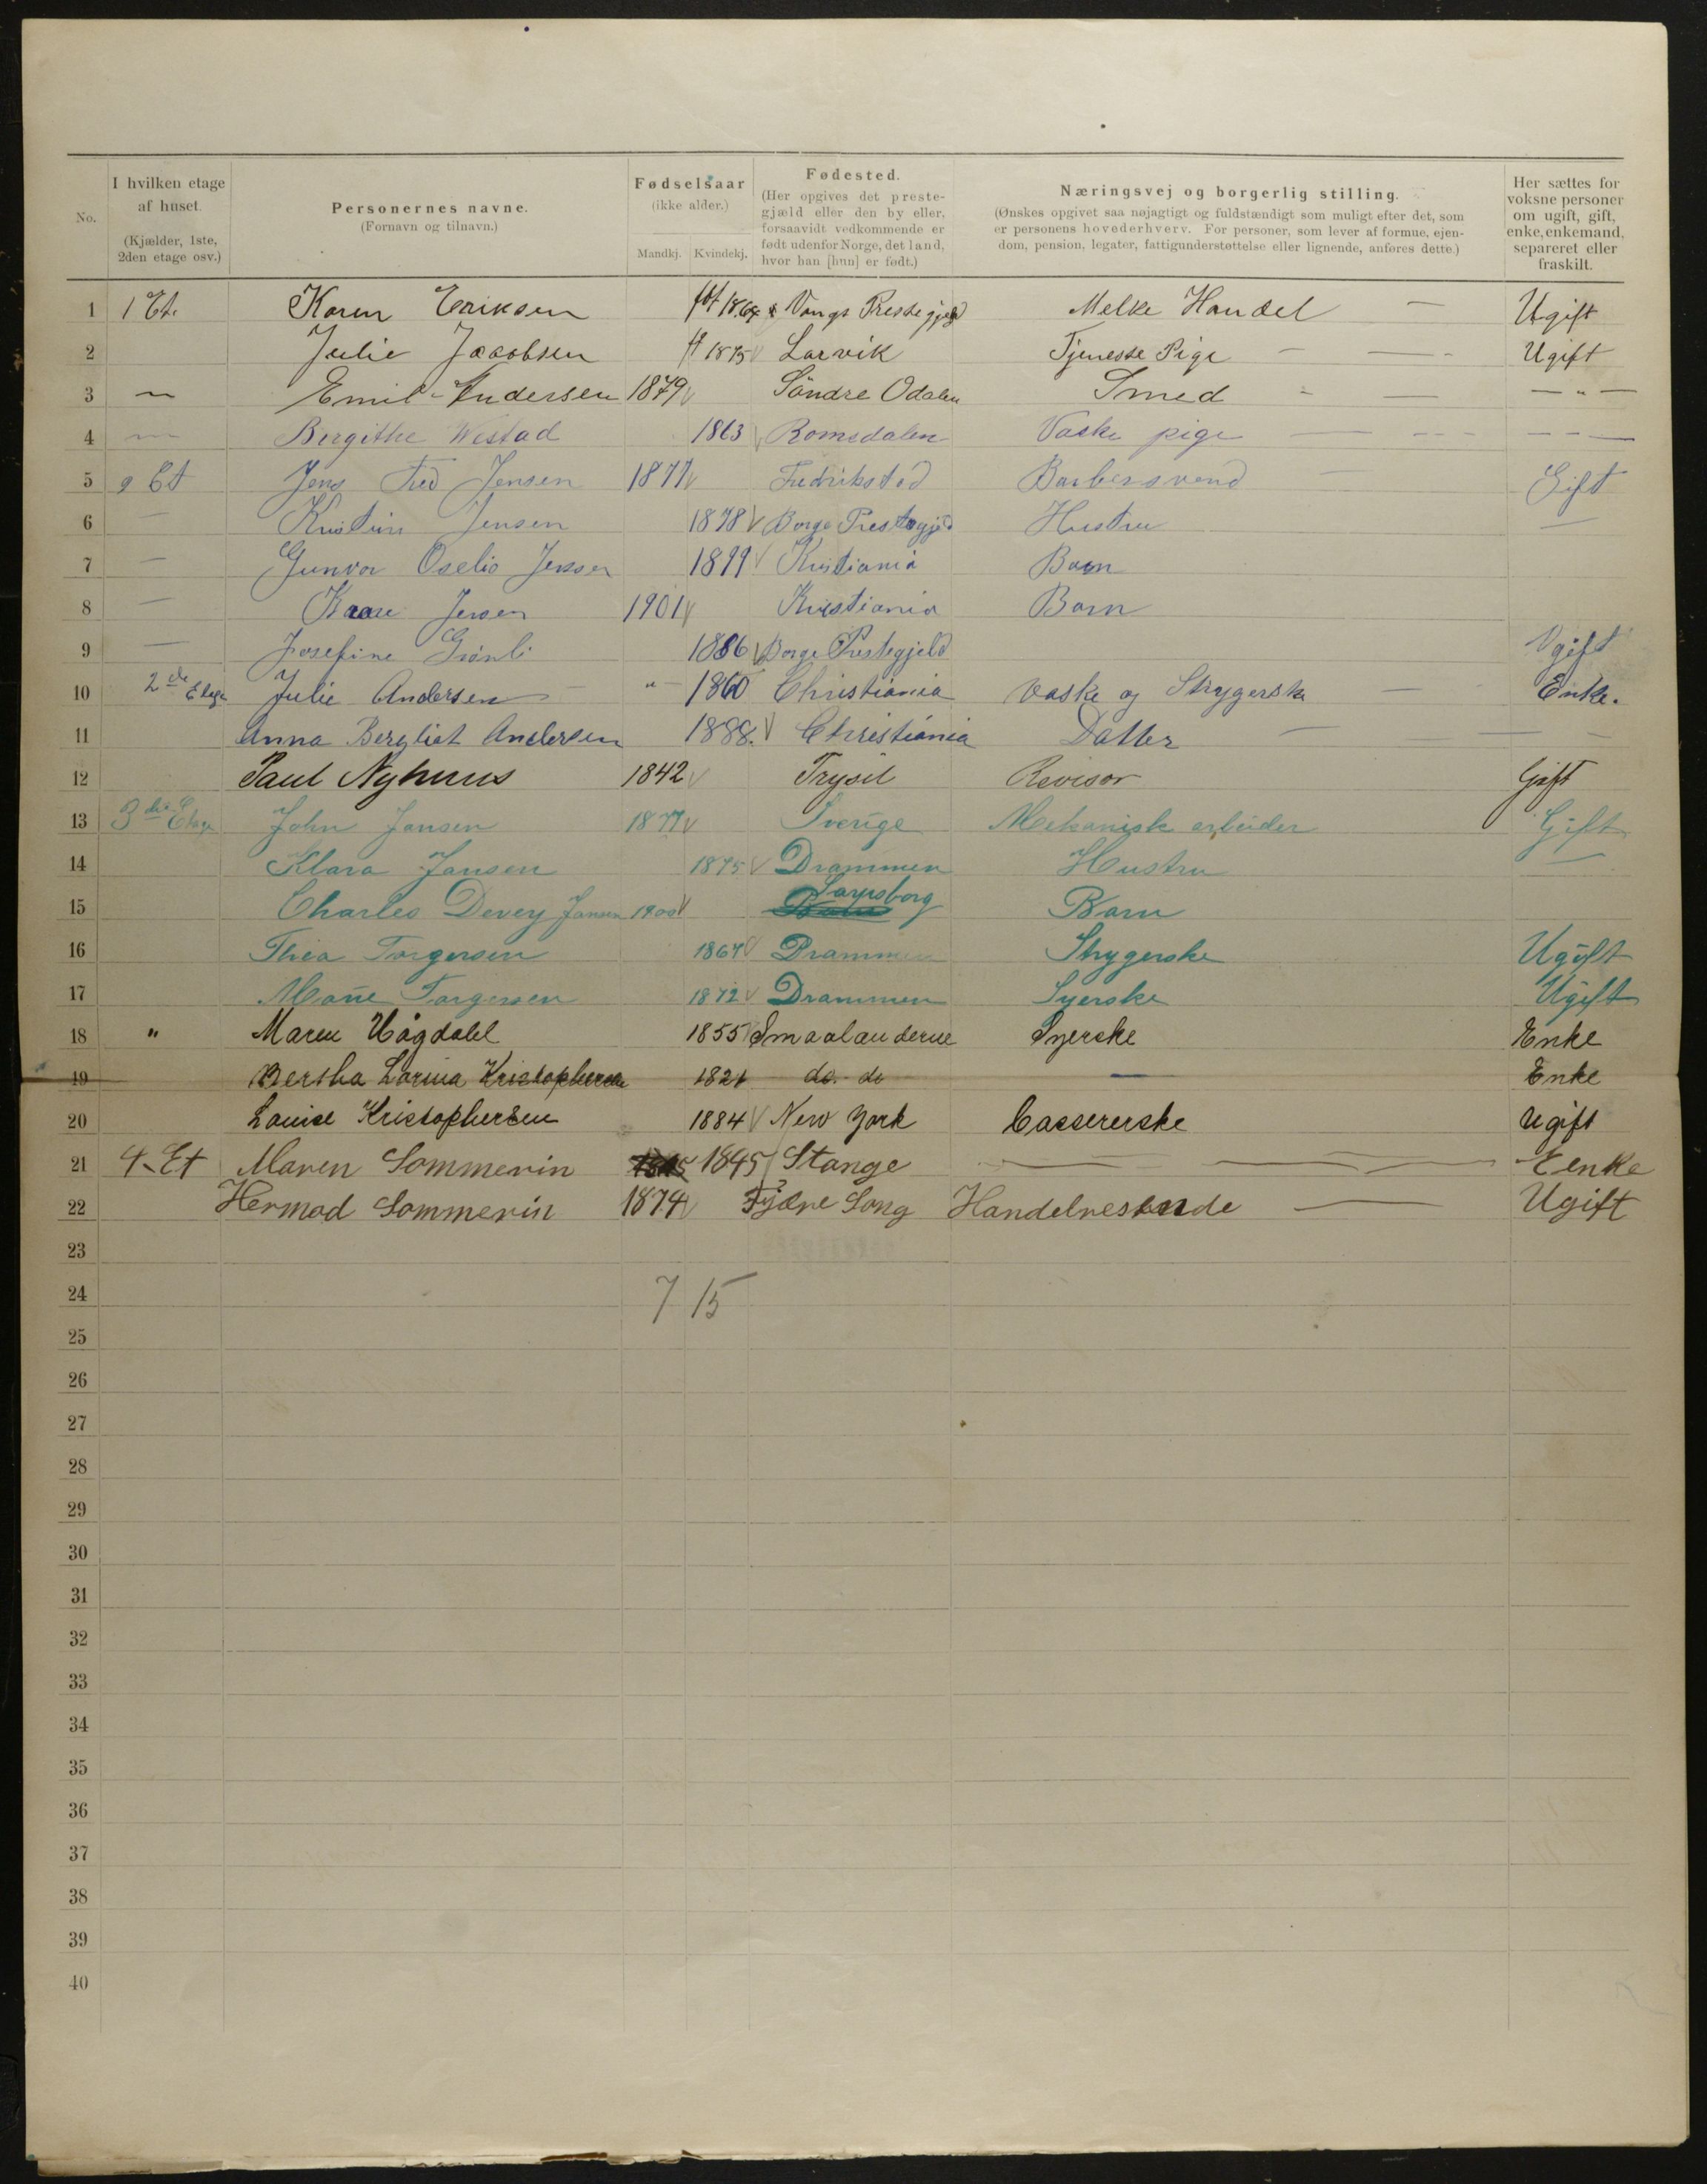 No. I hvilken etage af huset. (Kjælder, 1ste, 2den etage osv.) Personernes navne. (Fornavn og tilnavn.) Fødselsaar (ikke alder.) Mandkj. Kvindekj. Fødested. (Her opgives det prestegjæld eller den by eller, forsaavidt vedkommende er født udenfor Norge, det land, hvor han [hun] er født.) Næringsvej og borgerlig stilling. (Ønskes opgivet saa nøjagtigt og fuldstændigt som muligt efter det, som er personens hovederhverv. For personer, som lever af formue, ejendom, pension, legater, fattigunderstøttelse eller lignende, anføres dette.) Her sættes for voksne personer om ugift, gift, enke, enkemand, separeret eller fraskilt.
1 1 Et. Karen Eriksen 1864 Vangs Prestegjeld Melke Handel — Ugift
2 Julie Jacobsen 1875 Larvik Tjeneste Pige — — Ugift
3 — Emil Andersen 1879 Söndre Odalen Smed - — — " —
4 — Bergithe Westad 1863 Romsdalen Vaske pige — — — —
5 2 Et Jens Fred Jensen 1877 Fredrikstad Barbersvend — Gift
6 — Kristin Jensen 1878 Borge Prestegjeld Hustru —
7 — Gunvor Oselio Jensen 1899 Kristiania Barn
8 — Kaare Jensen 1901 Kristiania Barn
9 — Josefine Grönli 1886 Borge Prestegjeld Ugift
10 2de Etage Julie Andersen — " — 1860 Christiania Vaske og Strygerske — Enke.
11 Anna Bergliot Andersen 1888. Christiania Datter — — —
12 Paul Nyhuus 1842 Trysil Revisor Gift
13 3die Etage John Jansen 1877 Sverige Mekanisk arbeider Gift
14 Klara Jansen 1875 Drammen Hustru —
15 Charles Devey Jansen 1900 Sarpsborg Barn
16 Thea Torgersen 1864 Drammen Strygerske Ugift
17 Marie Torgersen 1872 Drammen Syerske Ugift
18 " Maren Hågdahl 1855 Smaalandene Syerske Enke
19 Bertha Larina Kristophersen 1821 do. do — Enke
20 Louise Kristophersen 1884 New York Cassererske Ugift
21 4. Et Maren Sommerin 1845 Stange — — — Eenke
22 Hermod Sommerin 1874 Fjære Song Handelresende — Ugift
23
24 7 15
25
26
27
28
29
30
31
32
33
34
35
36
37
38
39
40